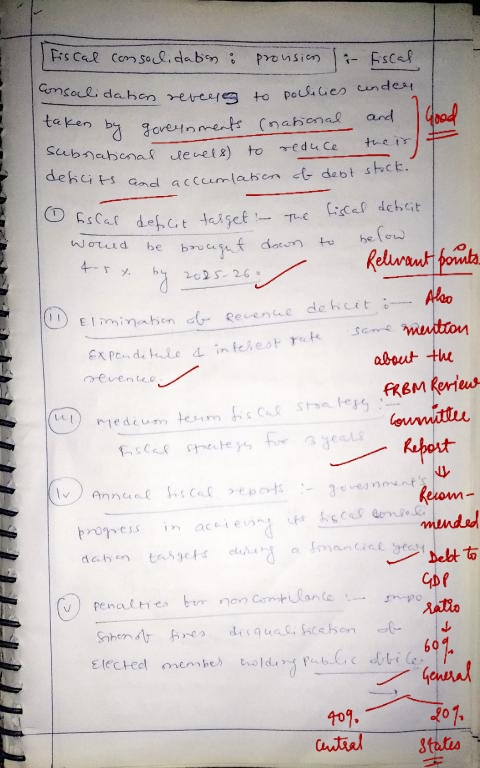 Fiscal consolidation : provision :- Fiscal
consolidation revers to policies under
taken by governments (national and
subnational levels) to reduce their
deficits and accumlation of debt stock.
Good
(i) Fiscal deficit target :- The fiscal deficit
would be brought down to below
4.5 % by 2025-26.
Relevant points
(ii) Elimination of Revenue deficit :-
Expenditure & interest rate same
revenue.
(iii) medium term fiscal strategy :-
Fiscal strategy for 3 years
(iv) Annual fiscal reports :- government's
progress in acieving its fiscal consoli
dation targets during a financial year
(v) Penalties for non compliance :- impo
sition of fines disqualification of
Elected member holding public office.
Also
mention
about the
FRBM Review
Committee
Report
⇓
Recom-
mended
Debt to
GDP
ratio
↓
60%
General
→
40% 20%
Central States